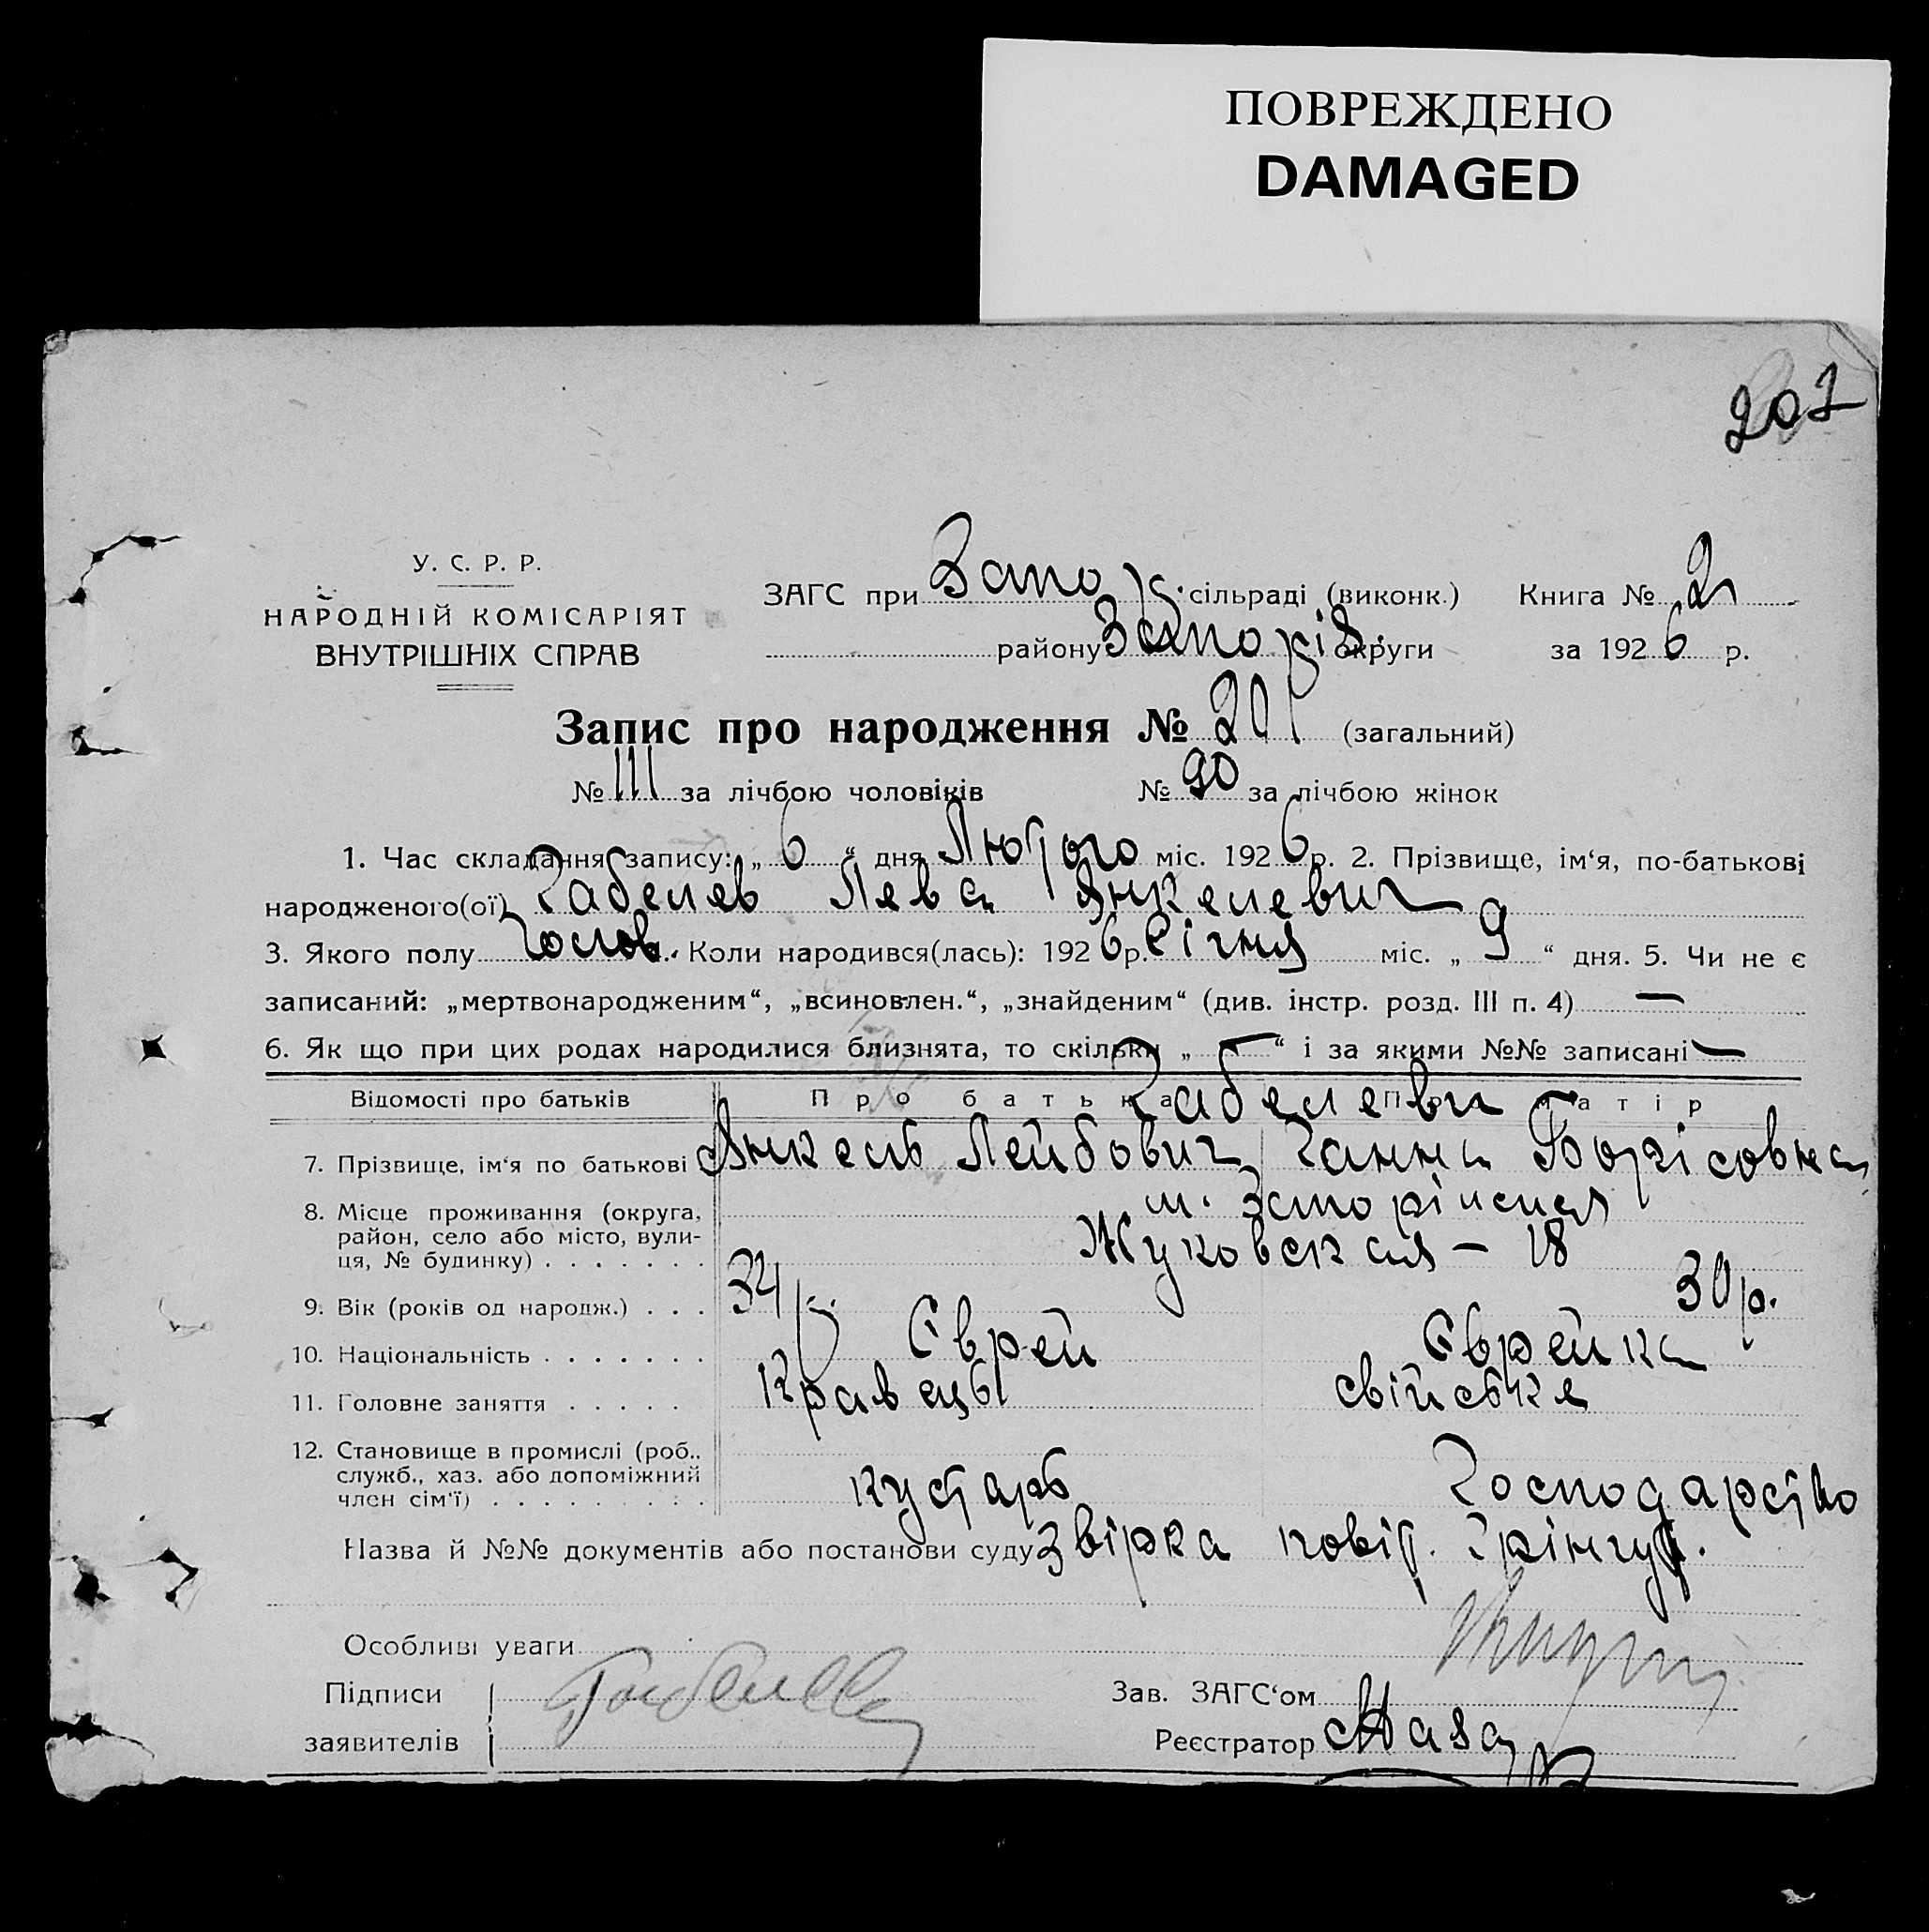 ПОВРЕЖДЕНО
DAMAGED
202
У. С. Р. Р.
НАРОДНІЙ КОМІСАРІЯТ
ВНУТРІШНІХ СПРАВ
ЗАГС при Запор. сільраді (виконк.) Книга № 2
району Запоріз. округи за 1926 р.
Запис про народження № 201 (загальний)
№ 111 за лічбою чоловіків № 90 за лічбою жінок
1. Час складання запису: „ 6 “ дня Лютого міс. 1926 р. 2. Прізвище, ім‘я, по-батькові
народженого(ої) Габелев Лева Янкелевич
3. Якого полу Чолов. Коли народився(лась): 1926 р. Січня міс. „ 9 “ дня. 5. Чи не є
записаний: „мертвонародженим“, „всиновлен.“, „знайденим“ (див. інстр. розд. III п. 4) —
6. Як що при цих родах народилися близнята, то скільки „ — “ і за якими №№ записані —
Відомості про батьків Про батька Про матір
Габелеви
7. Прізвище, ім‘я по батькові Янкель Лейбович Ганна Борісовна
8. Місце проживання (округа,
район, село або місто, вули-
ця, № будинку)
м.
Жуковская – 18
9. Вік (років од народж.) 34 р. 30 р.
10. Національність Єврей Єврейка
11. Головне заняття Кравець свійське
12. Становище в промислі (роб..
служб., хаз. або допоміжний
член сім‘ї)
кустарь Господарство
Назва й №№ документів або постанови суду Звірка повід.
Особливі уваги
Підписи
заявителів
Зав. ЗАГС‘ом
Реєстратор